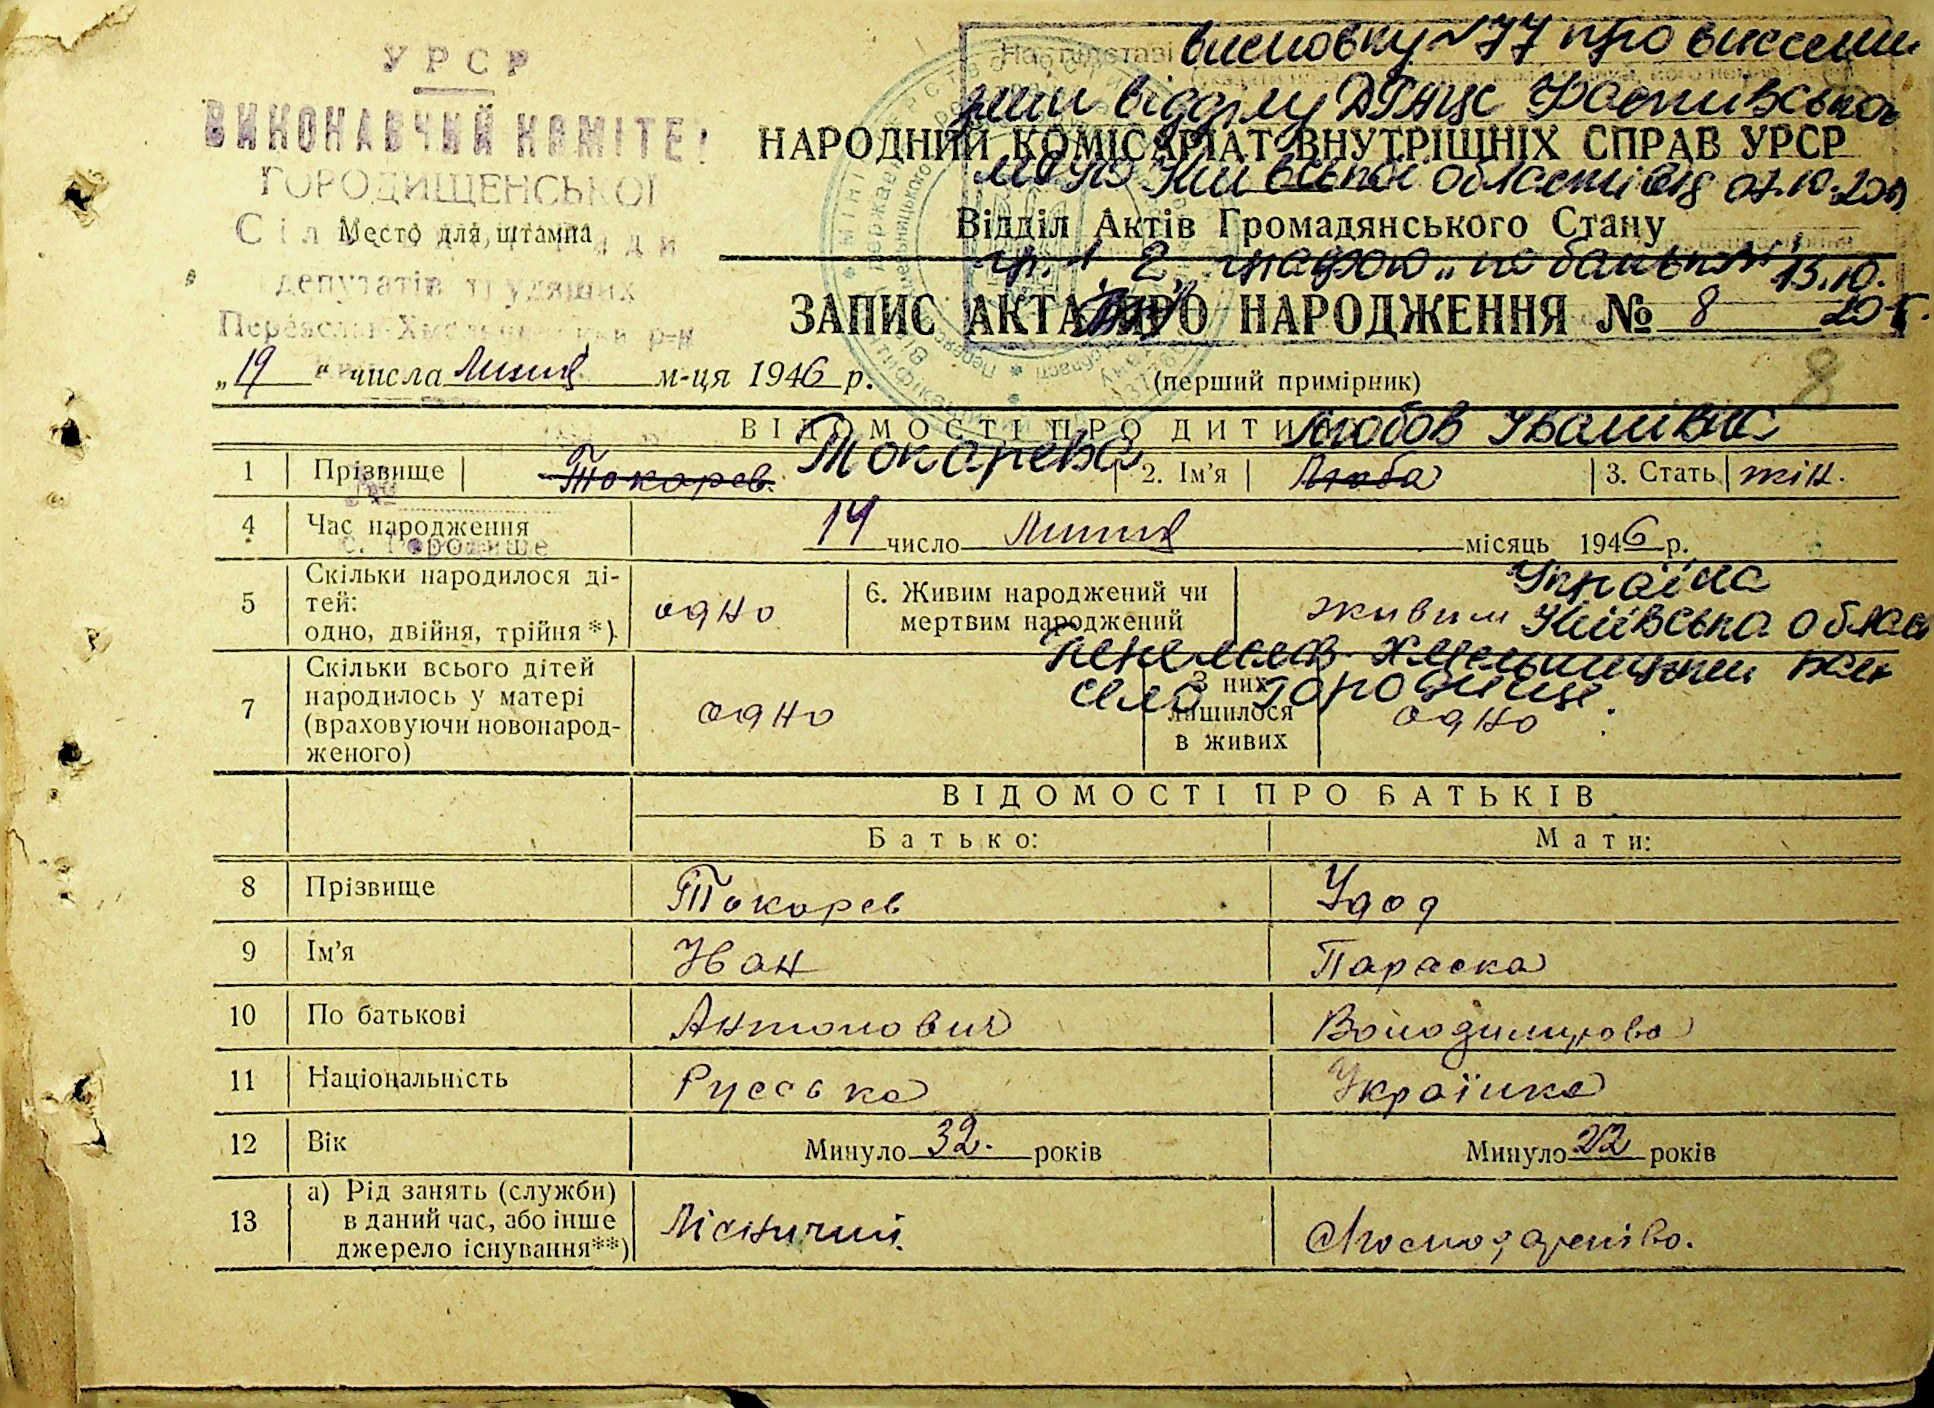 УРСР
ВИКОНАВЧИЙ КОМІТЕТ
ГОРОДИЩЕНСЬКОЇ
Место для штампа
депутатів трудящих
Переяслав-Хмельницький р-н
с. Городище
На підставі висновку №77 про внесення
змін відділу ДРАЦС Фастівського
МРУЮ Київської області від 07.10.20
гр. 1, 2 графою „по батькові" 13.10.
НАРОДНИЙ КОМІСАРІАТ ВНУТРІШНІХ СПРАВ УРСР
Відділ Актів Громадянського Стану
ЗАПИС АКТА ПРО НАРОДЖЕННЯ № 8
„19" числа Липня м-ця 1946 р.
(перший примірник)
8
ВІДОМОСТІ ПРО ДИТИНУ
Токарева Любов Іванівна
1 Прізвище Токарев. 2. Ім'я Люба 3. Стать жін.
4 Час народження 14 число Липня місяць 1946 р.
5 Скільки народилося ді-
тей:
одно, двійня, трійня*) одно 6. Живим народжений чи
мертвим народжений живим
Україна
Київська область
Переяслав-Хмельницький район
село Городище
7 Скільки всього дітей
народилось у матері
(враховуючи новонарод-
женого) одно З них
лишилося
в живих одно
ВІДОМОСТІ ПРО БАТЬКІВ
Батько: Мати:
8 Прізвище Токарев Удод
9 Ім'я Іван Параска
10 По батькові Антонович Володимирова
11 Національність Руська Українка
12 Вік Минуло 32. років Минуло 22 років
13 а) Рід занять (служби)
в даний час, або інше
джерело існування**) Лісничий.